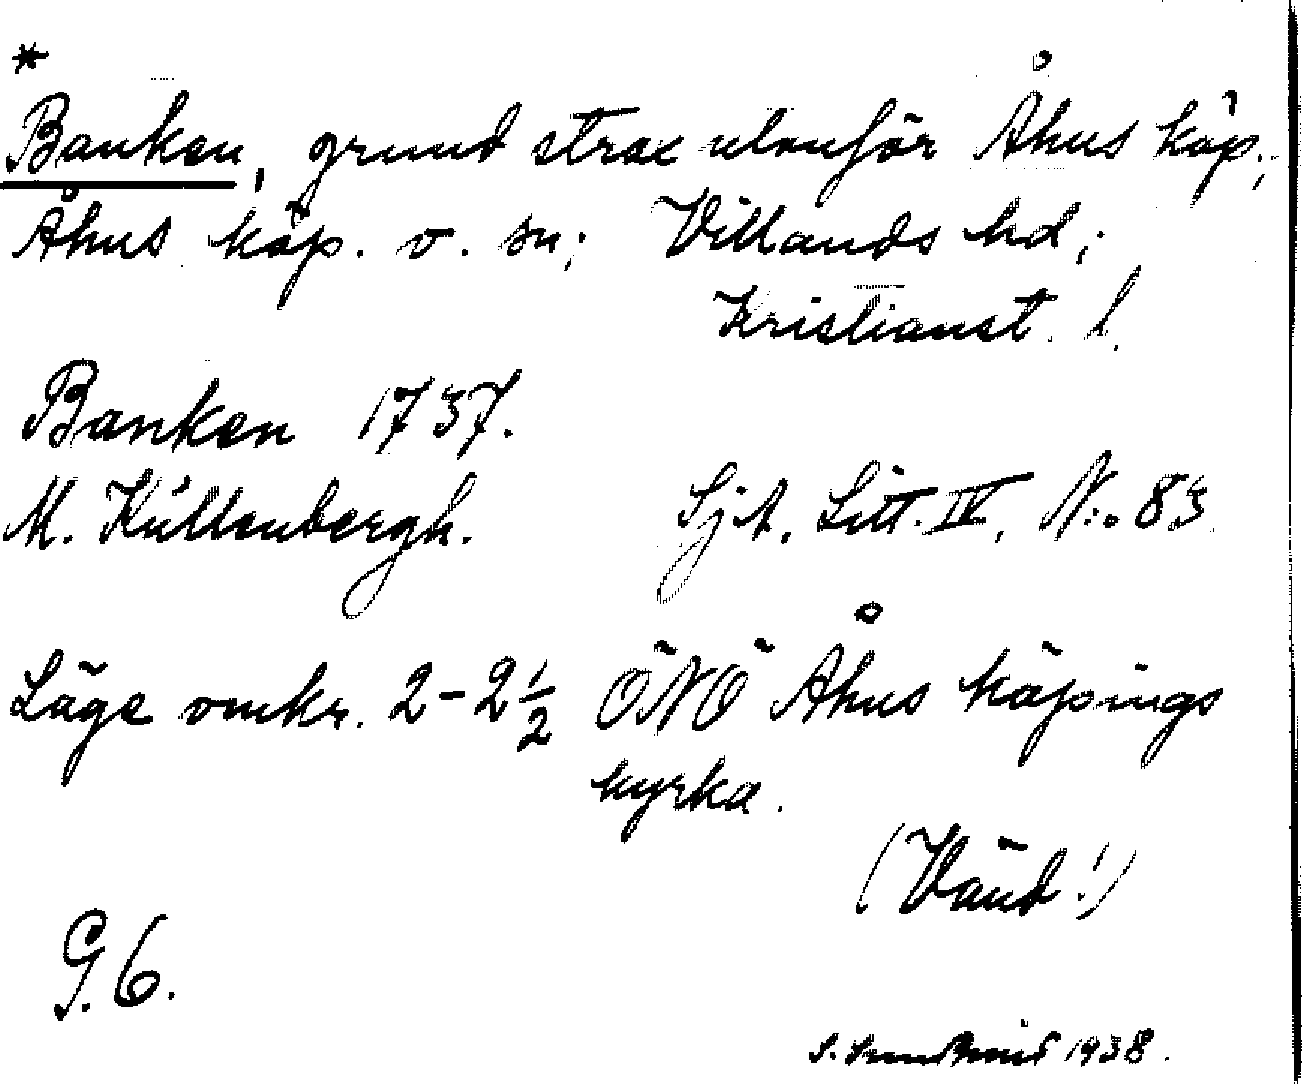 *
Banken, grund strax utanför Åhus köp.;
Åhus köp. o. sn; Villands hd;
Kristianst. l.
Banken 1737.
M. Küllenbergh. Sjk. Litt. IV. N:o 83
Läge omkr. 2-2 1/2 ÖNÖ Åhus köpings
kyrka.
(Vänd!)
G. 6.
S. 1938.